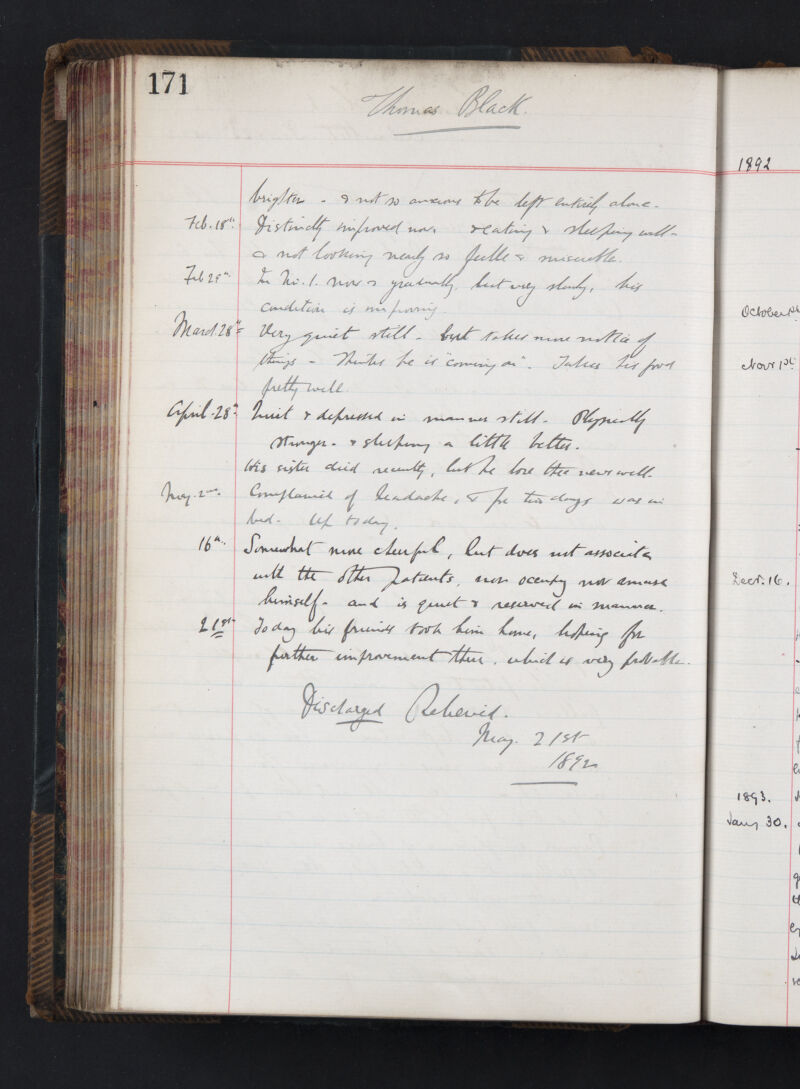 171
Thomas Black.
brighter - & not so anxious to be left entirely alone.
Feb. 18th. Distinctly improved now. & eating & sleeping well -
& not looking nearly so feeble & miserable.
Feb 29th In No. 1. now & gradually, but very slowly, his
condition is improving.
March 28th Very quiet still - but takes more notice of
things - Thinks he is "coming on". Takes his food
pretty well.
April 28th Quiet & depressed in manner still - Physically
stronger - & sleeping a little better.
His sister died recently, but he bore the news well.
May 2nd. Complained of headache, & for two days was in
bed - Up today.
16th. Somewhat more cheerful, but does not associate
with the other patients, nor occupy nor amuse
himself - and is quiet & reserved in manner.
21st Today his friends took him home, hoping for
further improvement there, which is very probable.
Discharged Relieved.
May 21st
1892
1892
October
Novr 1st
Decr. 16.
1893.
Jany 30.